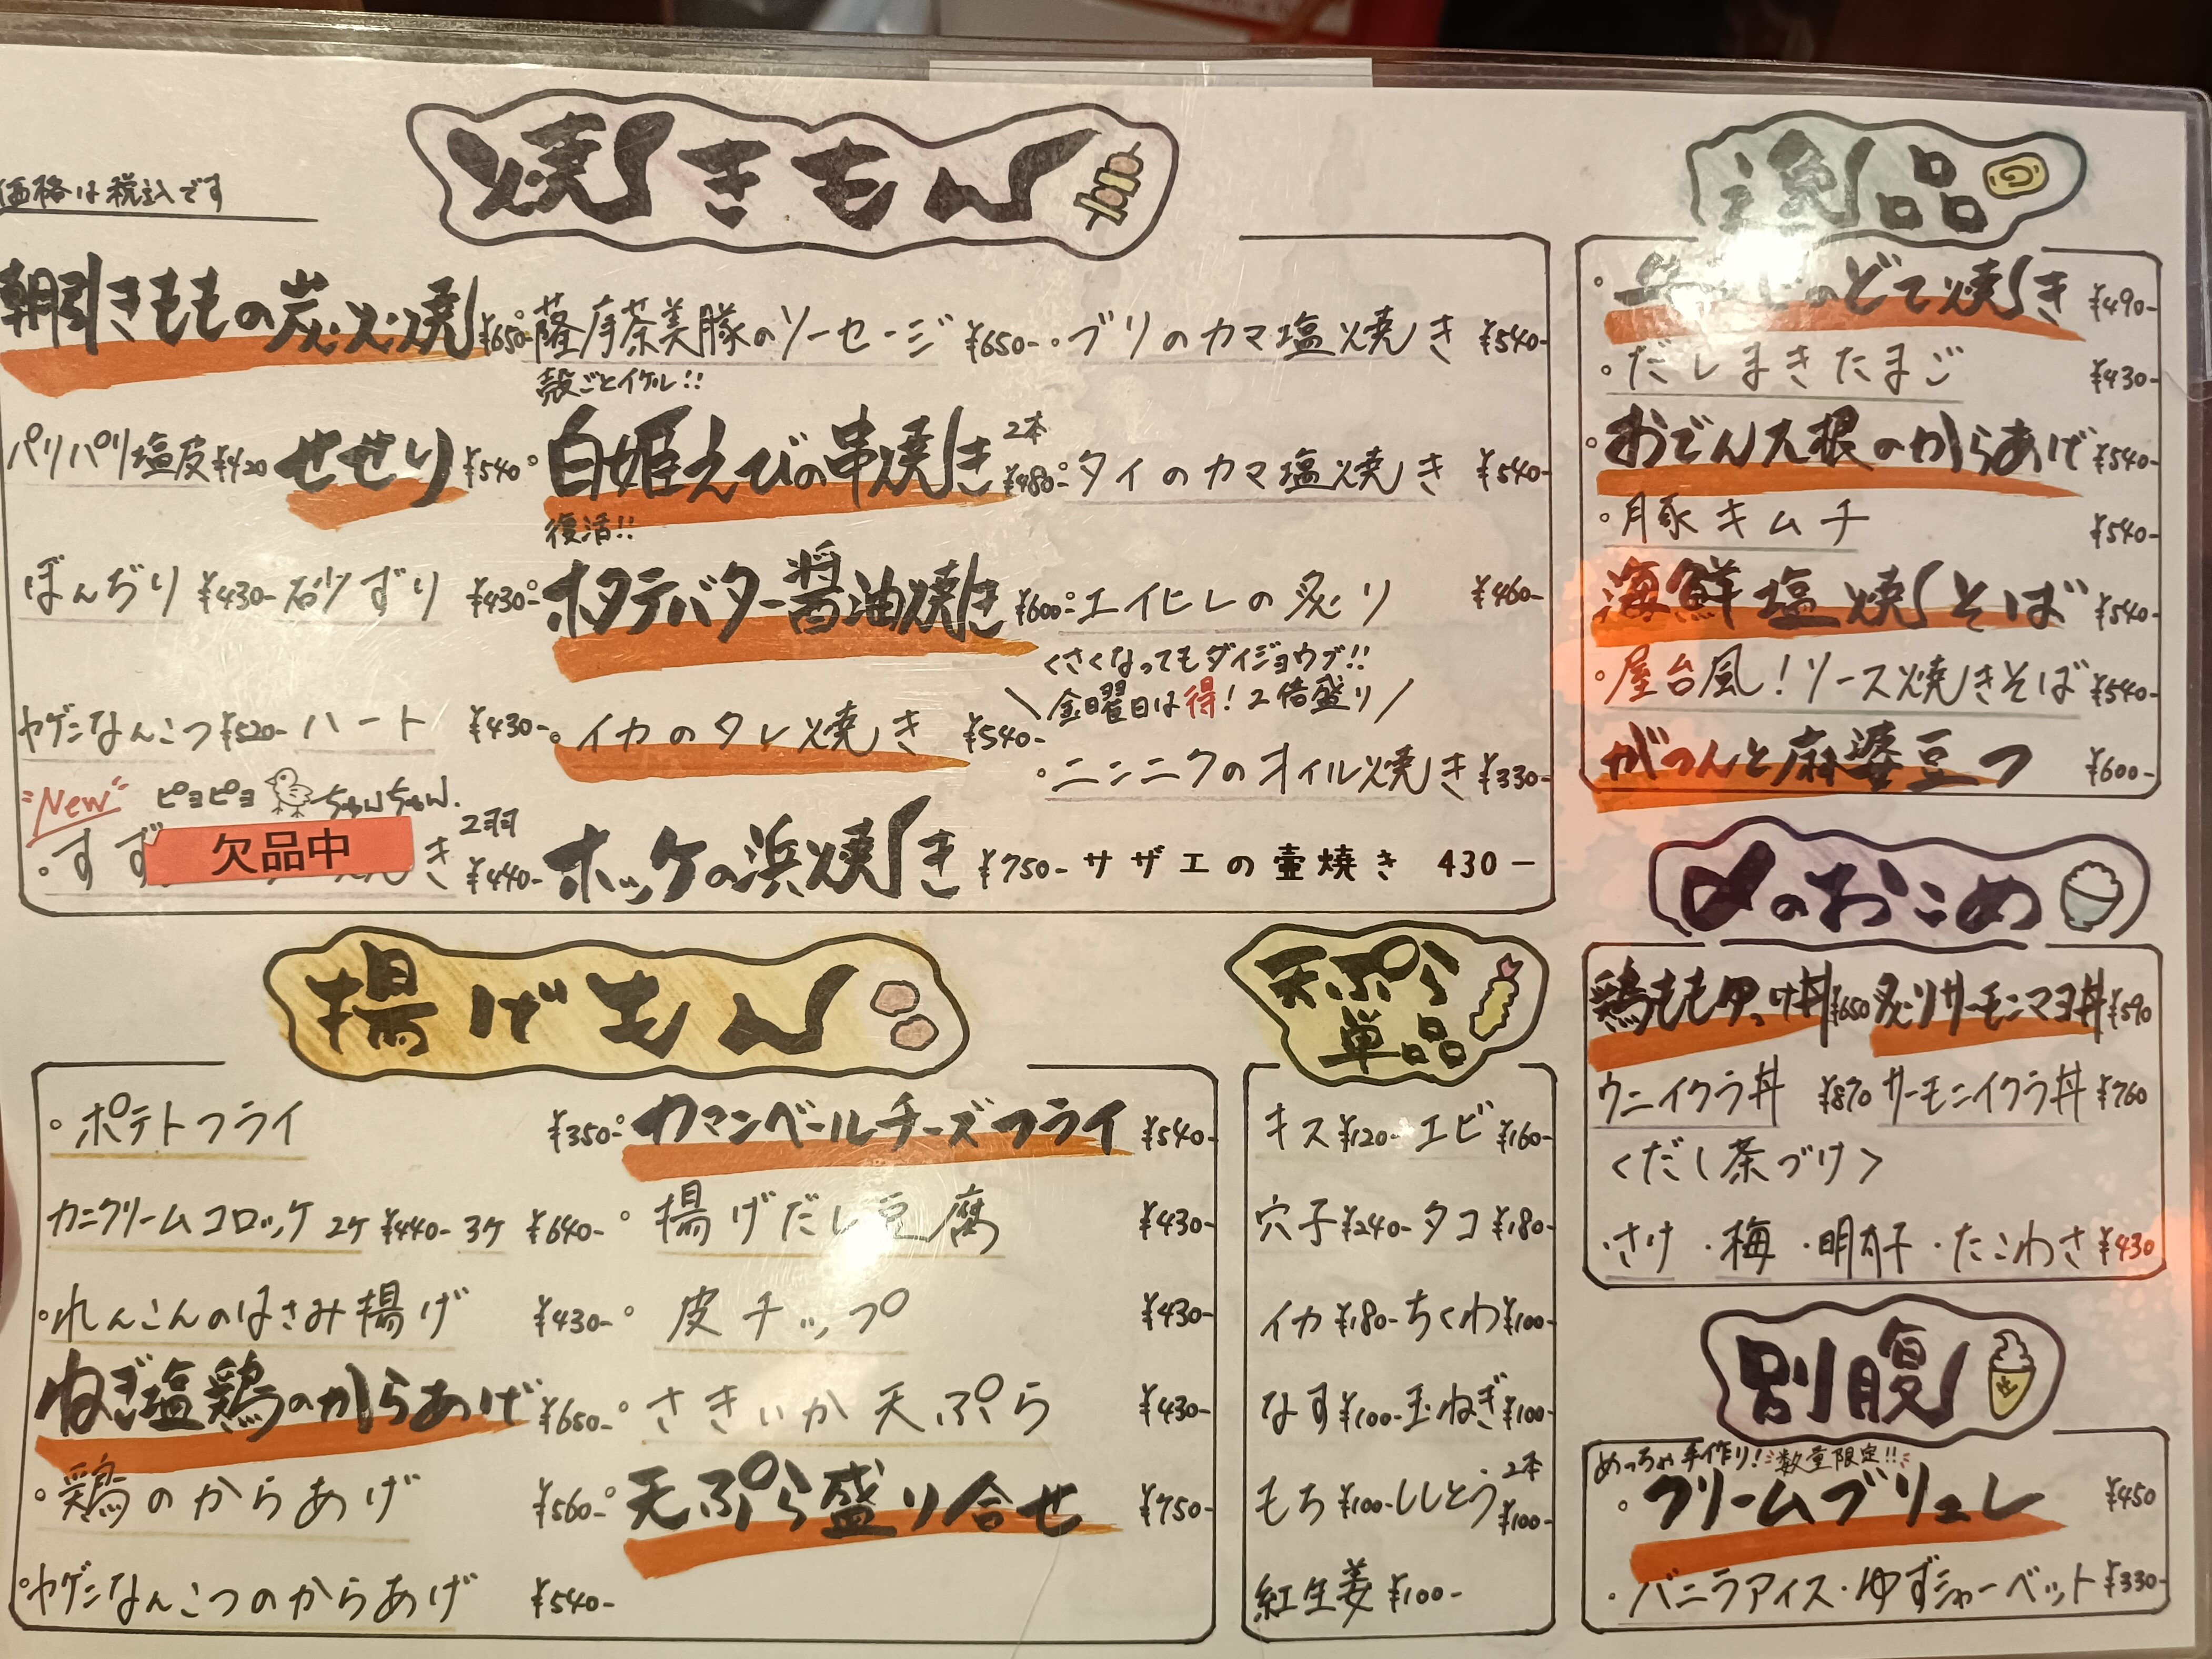 焼きもん
価格は税込です
朝引きももの炭火焼 ¥650-
パリパリ塩皮 ¥420 せせり ¥540
ぼんぢり ¥430- 砂ずり ¥430-
ヤゲンなんこつ ¥520- ハート ¥430-
New ピヨピヨ ちゅんちゅん
・すず 欠品中 き 2羽 ¥440-
薩摩茶美豚のソーセージ ¥650-
殻ごとイケル!!
白姫えびの串焼き 2本 ¥480-
復活!!
ホタテバター醤油焼き ¥600-
イカのタレ焼き ¥540-
ホッケの浜焼き ¥750-
・ブリのカマ塩焼き ¥540-
・タイのカマ塩焼き ¥540-
・エイヒレの炙り ¥460-
くさくなってもダイジョウブ!!
\金曜日は得!2倍盛り/
・ニンニクのオイル焼き ¥330-
サザエの壷焼き 430-
逸品
・のどて焼き ¥490-
・だしまきたまご ¥430-
・おでん大根のからあげ ¥540-
・豚キムチ ¥540-
海鮮塩焼そば ¥540-
・屋台風!ソース焼きそば ¥540-
がつんと麻婆豆フ ¥600-
〆のおこめ
鶏ももタタキ丼 ¥650 炙りサーモンマヨ丼 ¥590
ウニイクラ丼 ¥870 サーモンイクラ丼 ¥760
<だし茶づけ>
・さけ ・梅 ・明太子 ・たこわさ ¥430
別腹
めっちゃ手作り! 数量限定!!
・クリームブリュレ ¥450
・バニラアイス・ゆずシャーベット ¥330-
揚げもん
・ポテトフライ ¥350-
カニクリームコロッケ 2ケ ¥440- 3ケ ¥640-
・れんこんのはさみ揚げ ¥430-
ねぎ塩鶏のからあげ ¥650-
・鶏のからあげ ¥560-
・ヤゲンなんこつのからあげ ¥540-
・カマンベールチーズフライ ¥540-
・揚げだし豆腐 ¥430-
・皮チップ ¥430-
・さきいか天ぷら ¥430-
・天ぷら盛り合せ ¥750-
天ぷら
単品
キス ¥120- エビ ¥160-
穴子 ¥240- タコ ¥180-
イカ ¥180- ちくわ ¥100-
なす ¥100- 玉ねぎ ¥100-
もち ¥100- ししとう 2本 ¥100-
紅生姜 ¥100-